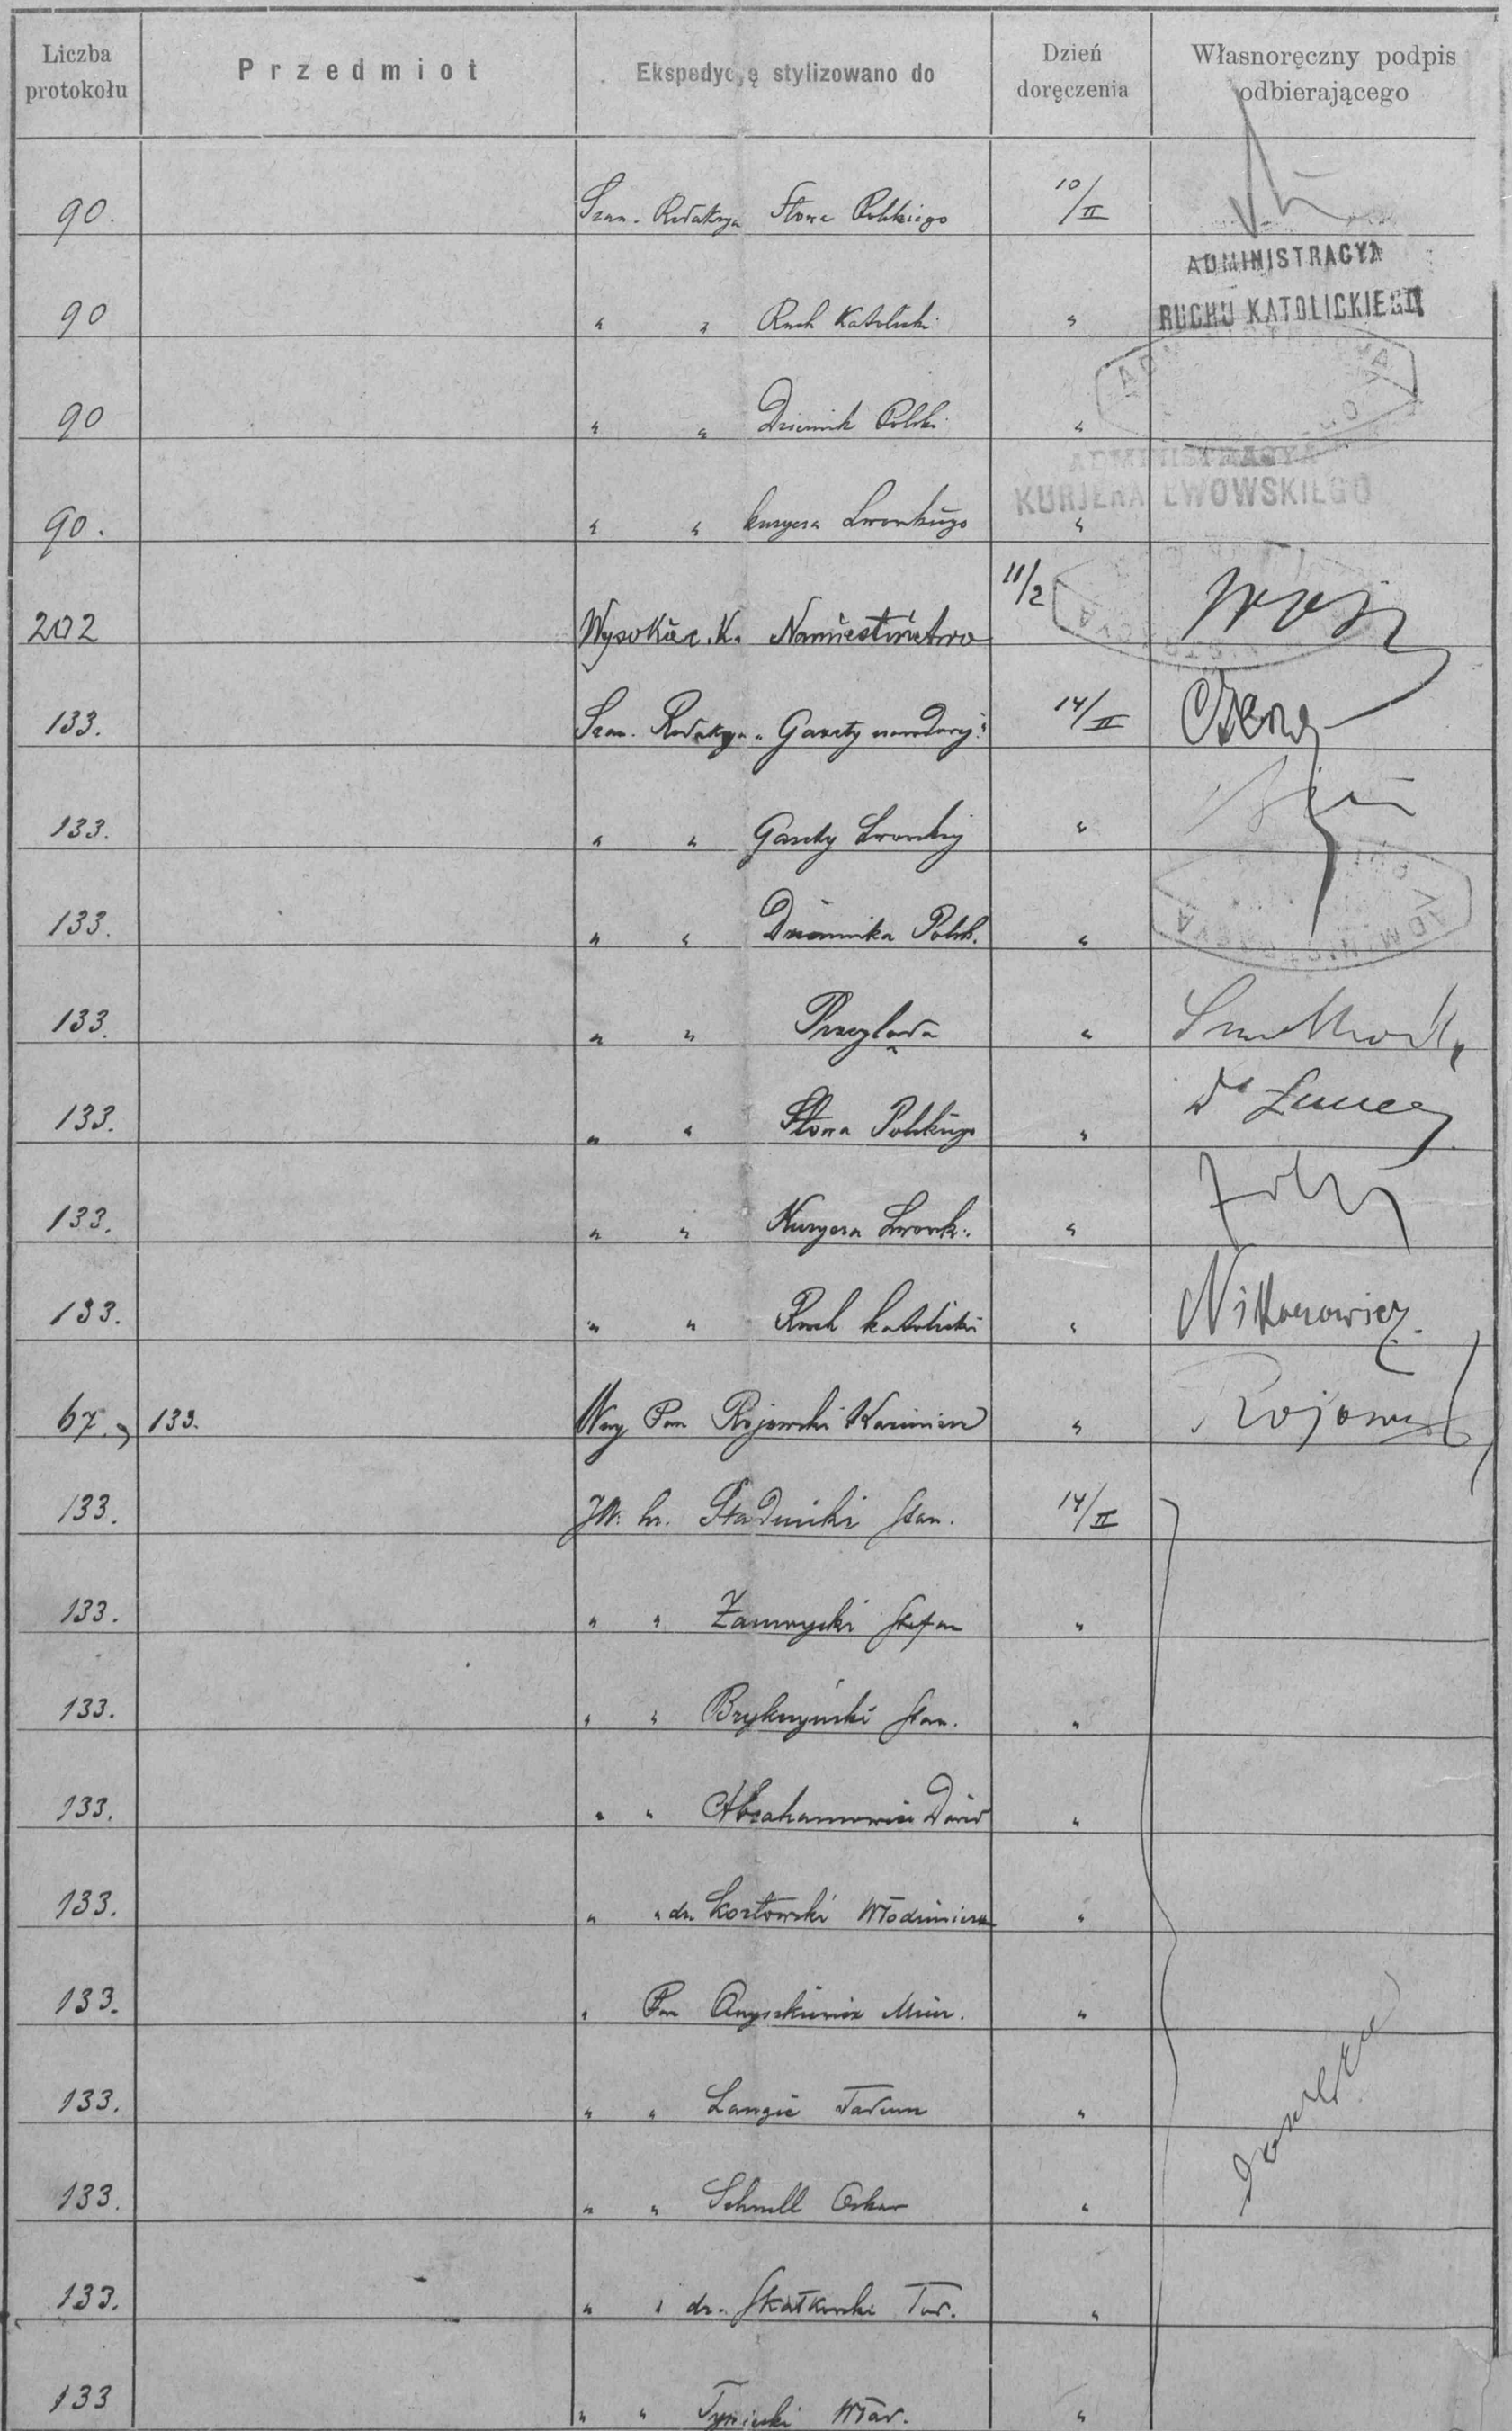 Liczba protokołu Przedmiot Ekspedycyę stylizowano do Dzień doręczenia Własnoręczny podpis odbierającego
90. Szan. Redakcya Słowa Polskiego 10/II
ADMINISTRACYA
90 " " Ruch Katolicki "
RUCHU KATOLICKIEGO
90 " " Dziennik Polski "
ADMINISTRACYA
KURJERA LWOWSKIEGO
90. " " Kuryera Lwowskiego "
202 Wysokie c. K. Namiestnictwo 11/2
133. Szan. Redakcya "Gazety narodowej" 14/II
133. " " Gazety Lwowskiej "
133. " " Dziennika Polsk. "
133. " " Przeglądu "
133. " " Słowa Polskiego "
133. " " Kuryera Lwowsk. "
133. " " Ruch katolicki " Nikorowicz
67., 133. Wny Pan Rojowski Kazimierz " Rojowski
133. JW. hr. Stadnicki Stan. 14/II
133. " " Zamoyski Stefan "
133. " " Brykczyński Stan. "
133. " " Abrahamowicz Dawid "
133. " " dr. Kozłowski Włodzimierz "
133. " Pan Onyszkiewicz "
133. " " Langie Tadeusz "
133. " " Schnell Oskar "
133. " " dr. Skałkowski Tad. "
133 " " Tyniecki Wład. "